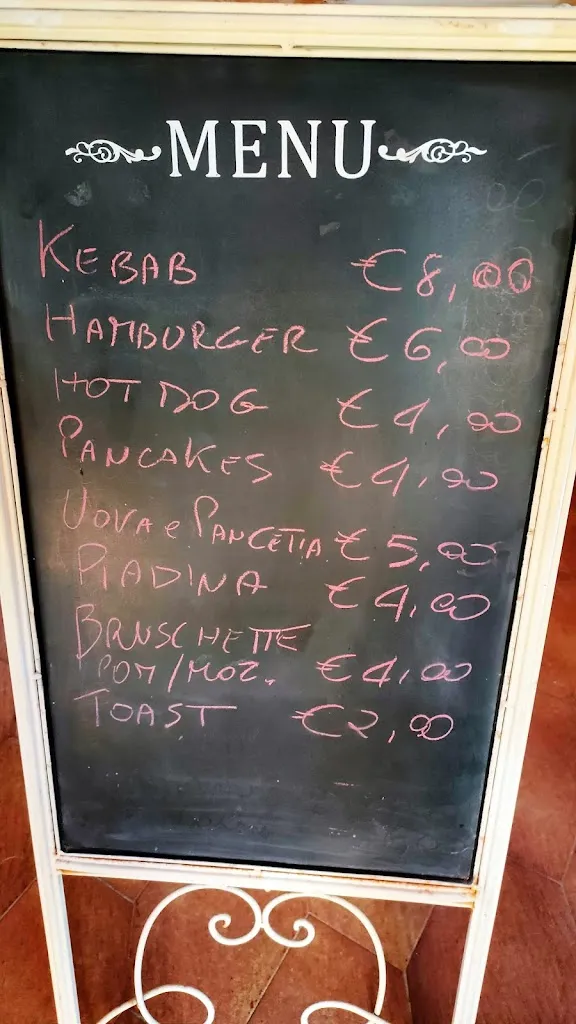 MENU
KEBAB €8,00
HAMBURGER €6,00
HOT DOG €4,00
PANCAKES €4,00
UOVA e PANCETTA €5,00
PIADINA €4,00
BRUSCHETTE
POM/MOZ. €4,00
TOAST €2,00